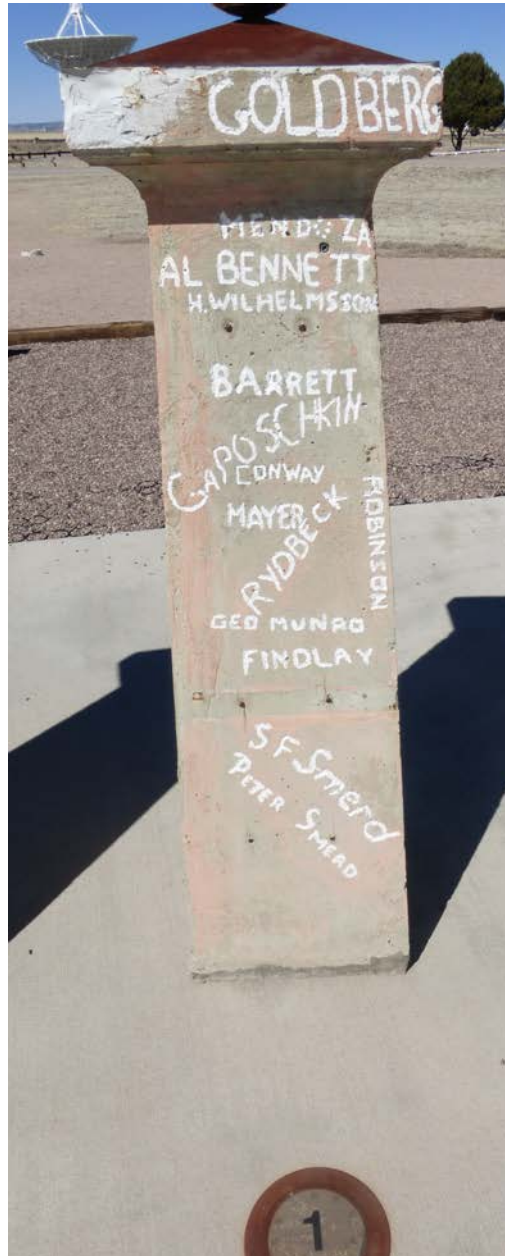 GOLDBERG
MENDOZA
AL BENNETT
H. WILHELMSSON
BARRETT
GAPOSCHKIN
CONWAY
MAYER
RYDBECK
ROBINSON
GEO MUNRO
FINDLAY
S F Smerd
PETER SMERD
1